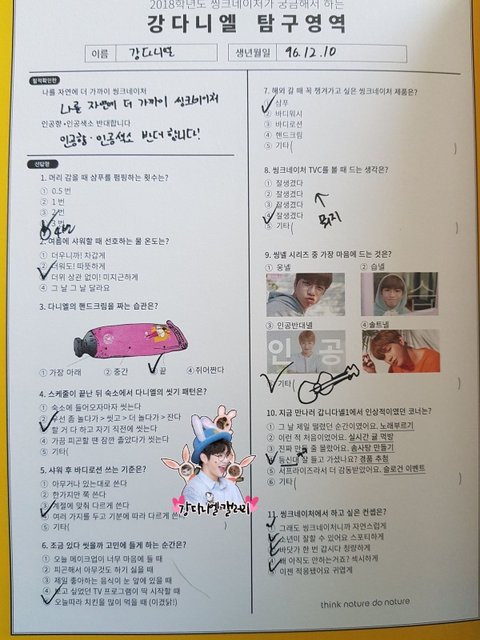 2018학년도 씽크네이처가 궁금해서 하는
강다니엘 탐구영역
이름 강다니엘 생년월일 96.12.10
필적확인란
나를 자연에 더 가까이 씽크네이처
나를 자연에 더 가까이 씽크네이처
인공향•인공색소 반대합니다
인공향·인공색소 반대합니다!
선답형
1. 머리 감을 때 샴푸를 펌핑하는 횟수는?
① 0.5 번
② 1 번
③ 2 번
④ 3 번
4번
2. 여름에 샤워할 때 선호하는 물 온도는?
① 더우니까! 차갑게
② 더워도! 따뜻하게
③ 더위 상관 없이! 미지근하게
④ 그 날 그 날 달라요
3. 다니엘의 핸드크림을 짜는 습관은?
① 가장 아래 ② 중간 ③ 끝 ④ 쥐어짠다
4. 스케줄이 끝난 뒤 숙소에서 다니엘의 씻기 패턴은?
① 숙소에 들어오자마자 씻는다
② 우선 좀 놀다가 > 씻고 > 더 놀다가 > 잔다
③ 할 거 다 하고 자기 직전에 씻는다
④ 가끔 피곤할 땐 잠깐 졸았다가 씻는다
⑤ 기타(
5. 샤워 후 바디로션 쓰는 기준은?
① 아무거나 있는대로 쓴다
② 한가지만 쭉 쓴다
③ 계절에 맞춰 다르게 쓴다
④ 여러 가지를 두고 기분에 따라 다르게 쓴다
⑤ 기타(
강다니엘갤러리
6. 조금 있다 씻을까 고민에 들게 하는 순간은?
① 오늘 메이크업이 너무 마음에 들 때
② 피곤해서 아무것도 하기 싫을 때
③ 제일 좋아하는 음식이 눈 앞에 있을 때
④ 보고 싶었던 TV 프로그램이 막 시작할 때
⑤ 오늘따라 치킨을 많이 먹을 때 (이겼닭!)
7. 해외 갈 때 꼭 챙겨가고 싶은 씽크네이처 제품은?
① 샴푸
② 바디워시
③ 바디로션
④ 핸드크림
⑤ 기타( )
8. 씽크네이처 TVC를 볼 때 드는 생각은?
① 잘생겼다
② 잘생겼다
③ 잘생겼다
④ 잘생겼다
⑤ 기타( )
뭐지
9. 씽넬 시리즈 중 가장 마음에 드는 것은?
① 옹넬 ② 습넬
③ 인공반대넬 ④ 솔트넬
인 공
⑤ 기타( )
10. 지금 만나러 갑니다넬1에서 인상적이였던 코너는?
① 그 날 제일 떨렸던 순간이였어요. 노래부르기
② 이런 적 처음이었어요. 실시간 귤 먹방
③ 진짜 만들 줄 몰랐어요. 솜사탕 만들기
④ 등신대 잘 들고 가셨나요? 경품 추첨
⑤ 서프라이즈라서 더 감동받았어요. 슬로건 이벤트
⑥ 기타( )
11. 씽크네이처에서 하고 싶은 컨셉은?
① 그래도 씽크네이처니까 자연스럽게
② 소년이 잘할 수 있어요 스포티하게
③ 바닷가 한 번 갑시다 청량하게
④ 왜 아직도 안하는거죠? 섹시하게
⑤ 이젠 적응됐어요 귀엽게
think nature do nature